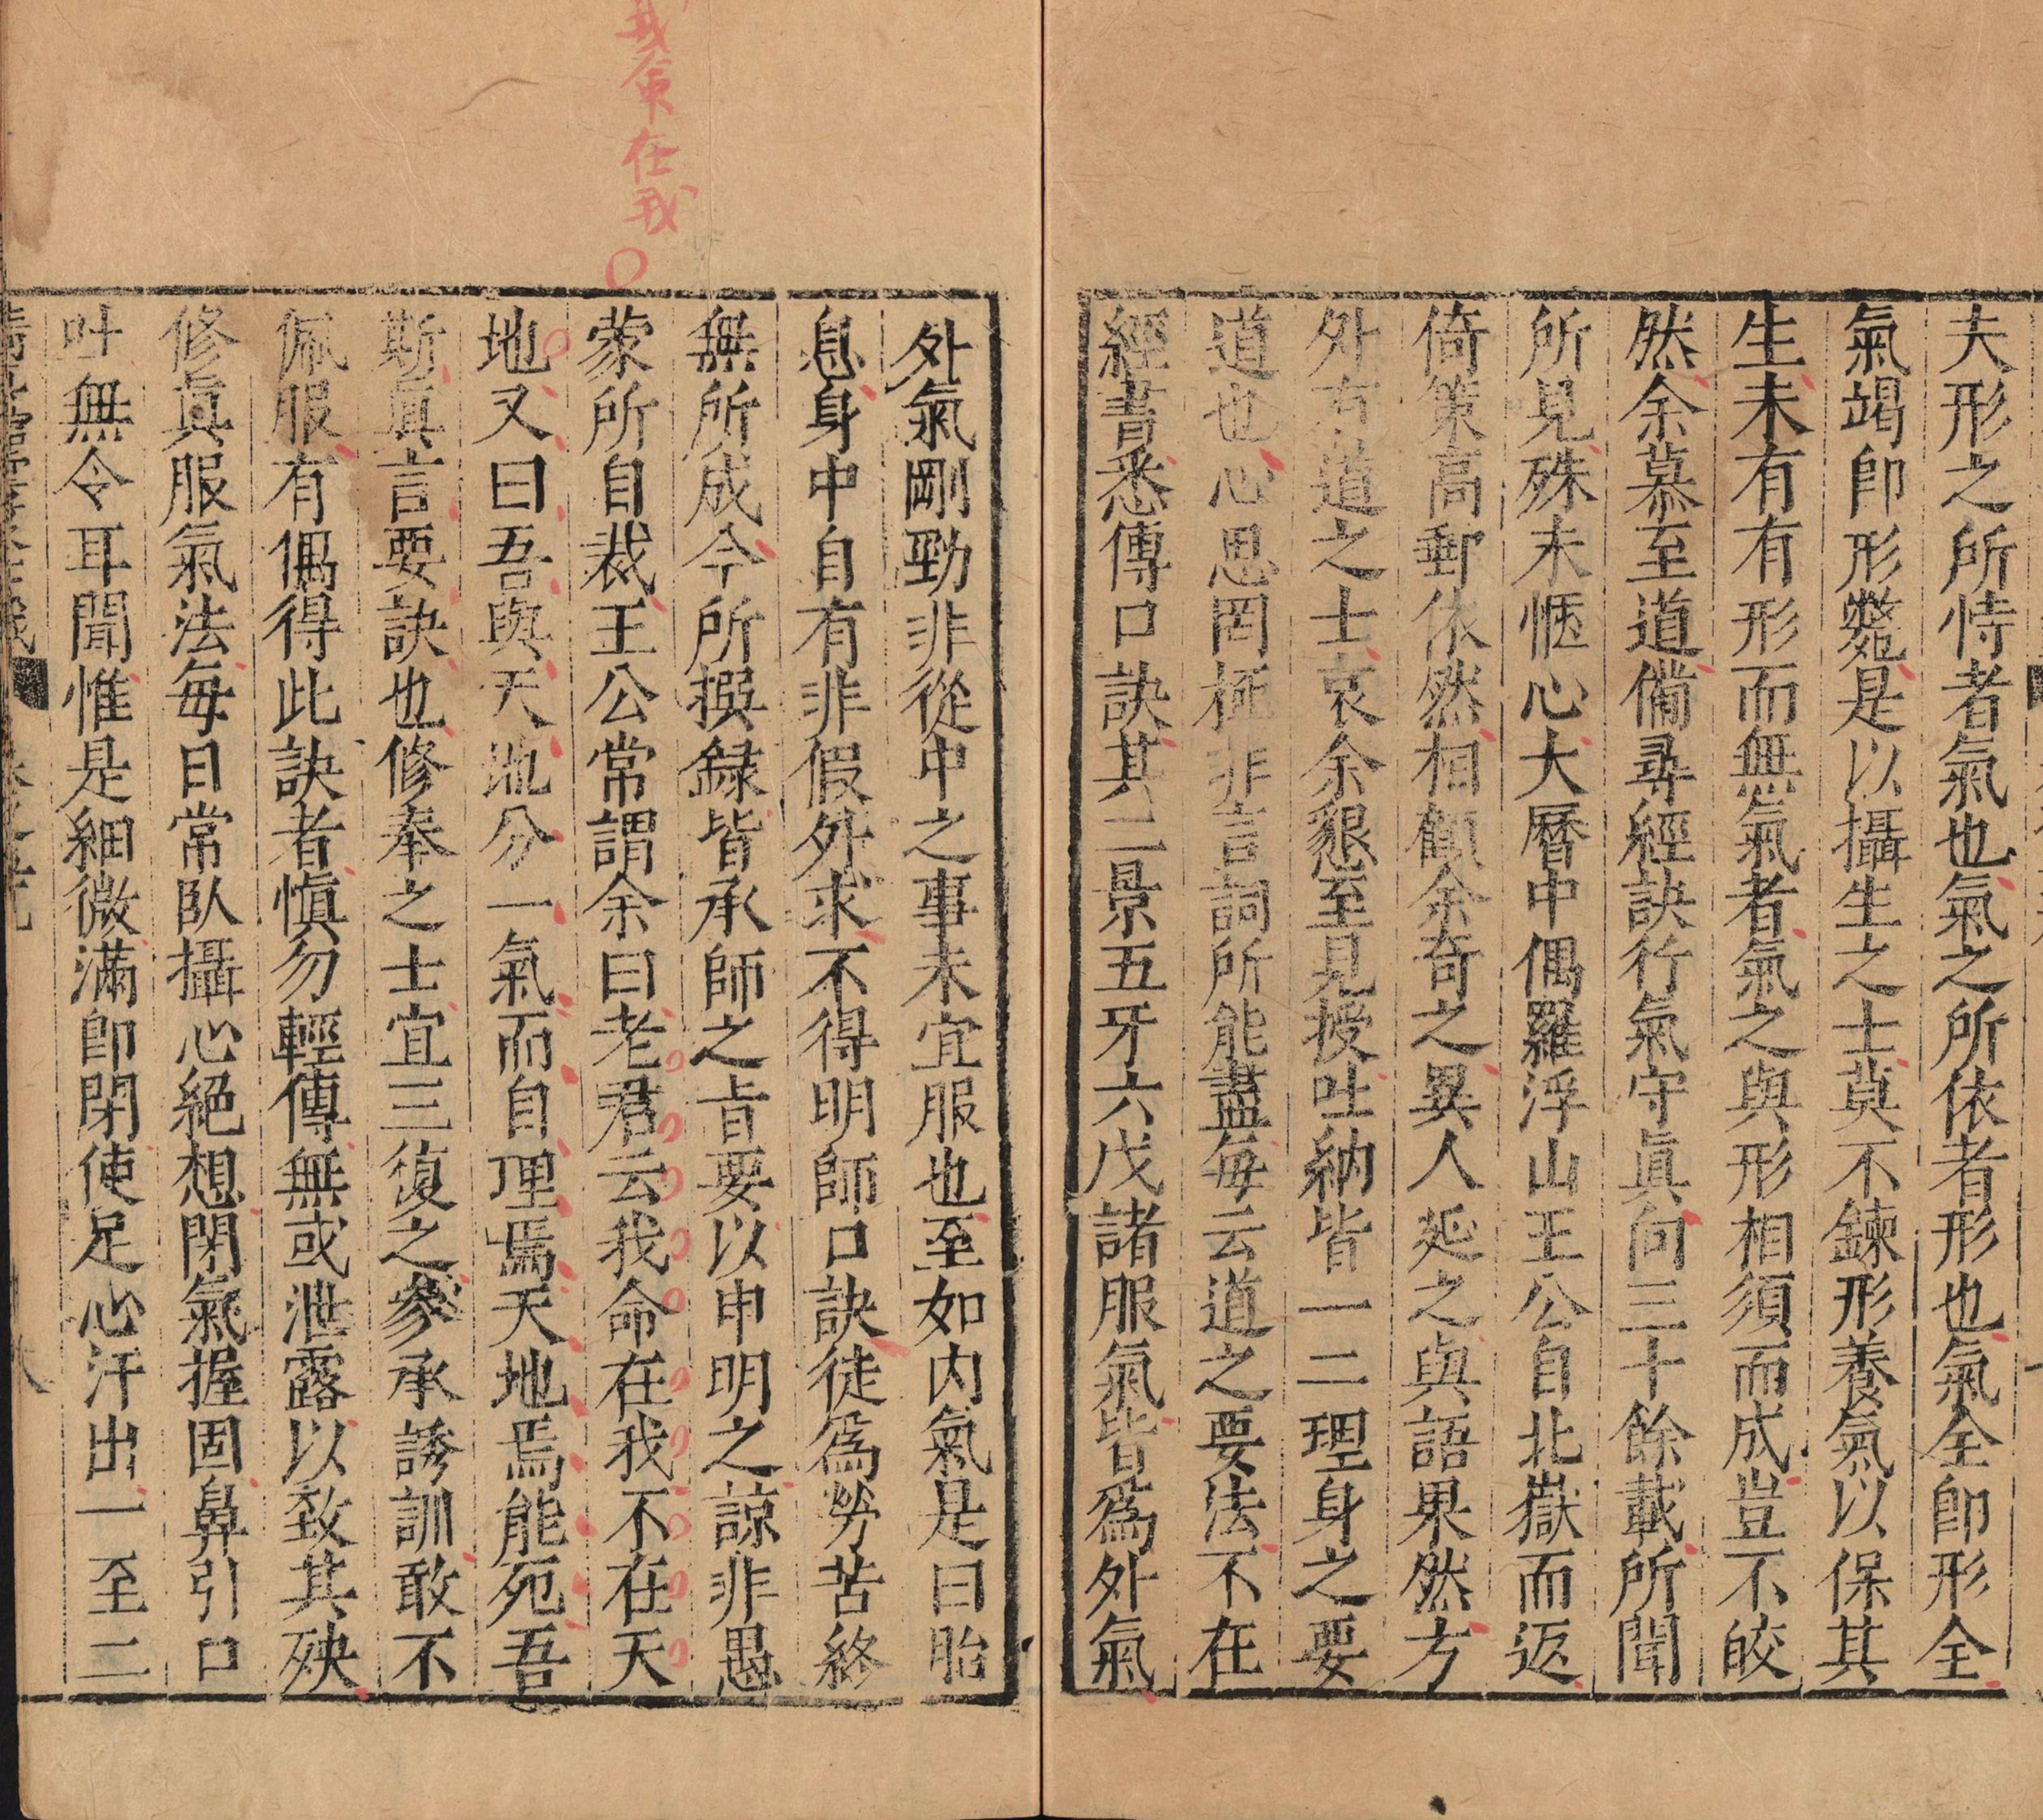 夫形之所恃者氣也氣之所依者形也氣全卽形全
氣竭卽形斃是以攝生之士莫不鍊形養氣以保其
生未有有形而無氣者氣之與形相須而成豈不皎
然余慕至道備尋經訣行氣守眞向三十餘載所聞
所見殊未愜心大曆中偶羅浮山王公自北嶽而返
倚策高郵依然相顧余奇之異人延之與語果然方
外有道之士哀余懇至見授吐納皆一二理身之要
道也心思罔極非言詞所能盡每云道之要法不在
經書悉傳口訣其二景五牙六戊諸服氣皆爲外氣
外氣剛勁非從中之事未宜服也至如内氣是曰胎
息身中自有非假外求不得明師口訣徒爲勞苦終
無所成今所撰録皆承師之旨要以申明之諒非愚
蒙所自裁王公常謂余曰老君云我命在我不在天
地又曰吾與天地分一氣而自理焉天地焉能死吾
斯眞言要訣也修奉之士宜三復之參承誘訓敢不
佩服有偶得此訣者愼勿輕傳無或泄露以致其殃
修眞服氣法每日常臥攝心絕想閉氣握固鼻引口
吐無令耳聞惟是細微滿卽閉使足心汗出一至二
我命在我